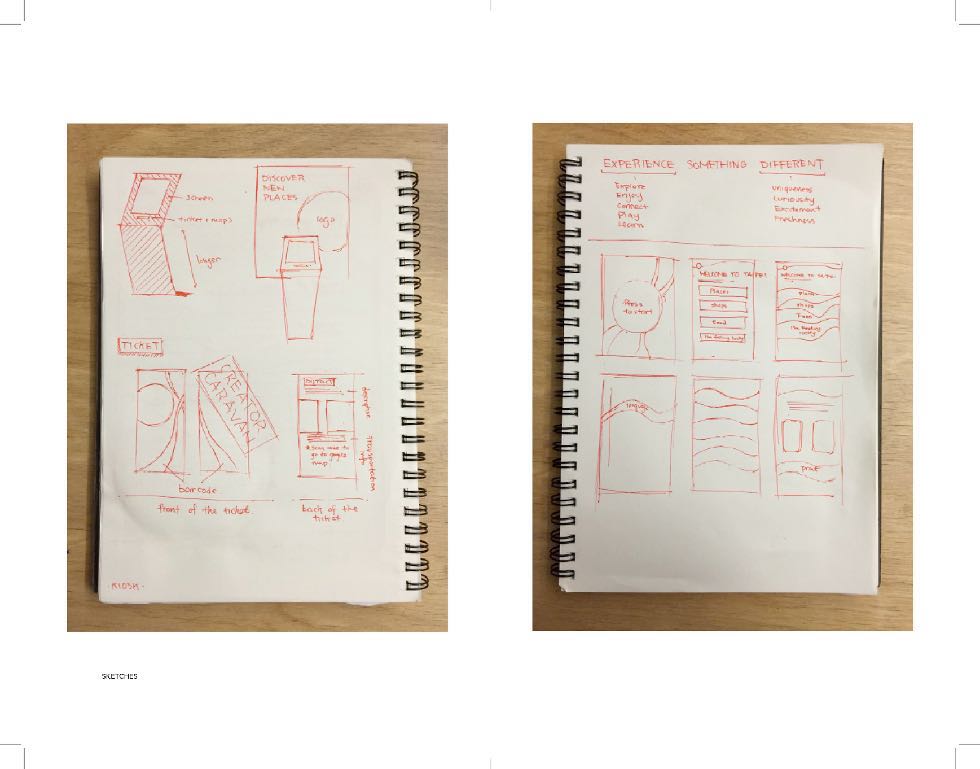 screen
ticket + maps
longer
DISCOVER
NEW
PLACES
logo
TICKET
CREATOR
CARAVAN
barcode
front of the ticket.
DISTRICT
* Scan code to
go to google
map
transportation
info
back of the
ticket
- KIOSK -
EXPERIENCE SOMETHING DIFFERENT
Explore
Enjoy
Connect
Play
Learn
uniqueness
curiousity
Excitement
Freshness
Press
to start
WELCOME TO TAIPEI
Places
shops
Food
The feeling lucky
WELCOME TO TAIPEI
places
shops
Food
The feeling
lucky
language
print
SKETCHES